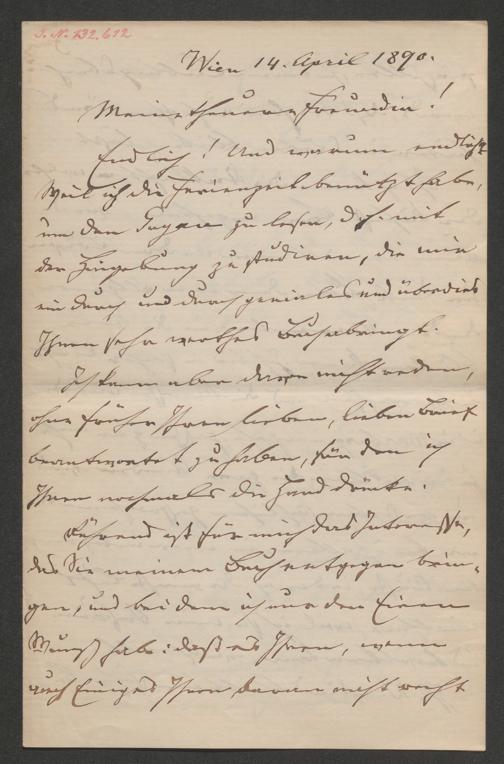 J. N. 132.612
Wien 14. April 1890.
Meine theuere Freundin!
Endlich! Und warum endlich?
Weil ich die Ferienzeit benützt habe,
um den zu lesen, d. h. mit
der Hingebung zu studiren, die mir
ein durch und durch geniales und überdies
Ihnen sehr werthes Buch abringt.
Ich kann aber davon nicht reden,
ohne früher Ihren lieben, lieben Brief
beantwortet zu haben, für den ich
Ihnen nochmals die Hand drücke.
Rührend ist für mich das Interesse,
das Sie meinem Buch entgegen brin-
gen, und bei dem ich nur den Einen
Wunsch habe: daß es Ihnen, wenn
auch Einiges Ihnen daran nicht recht